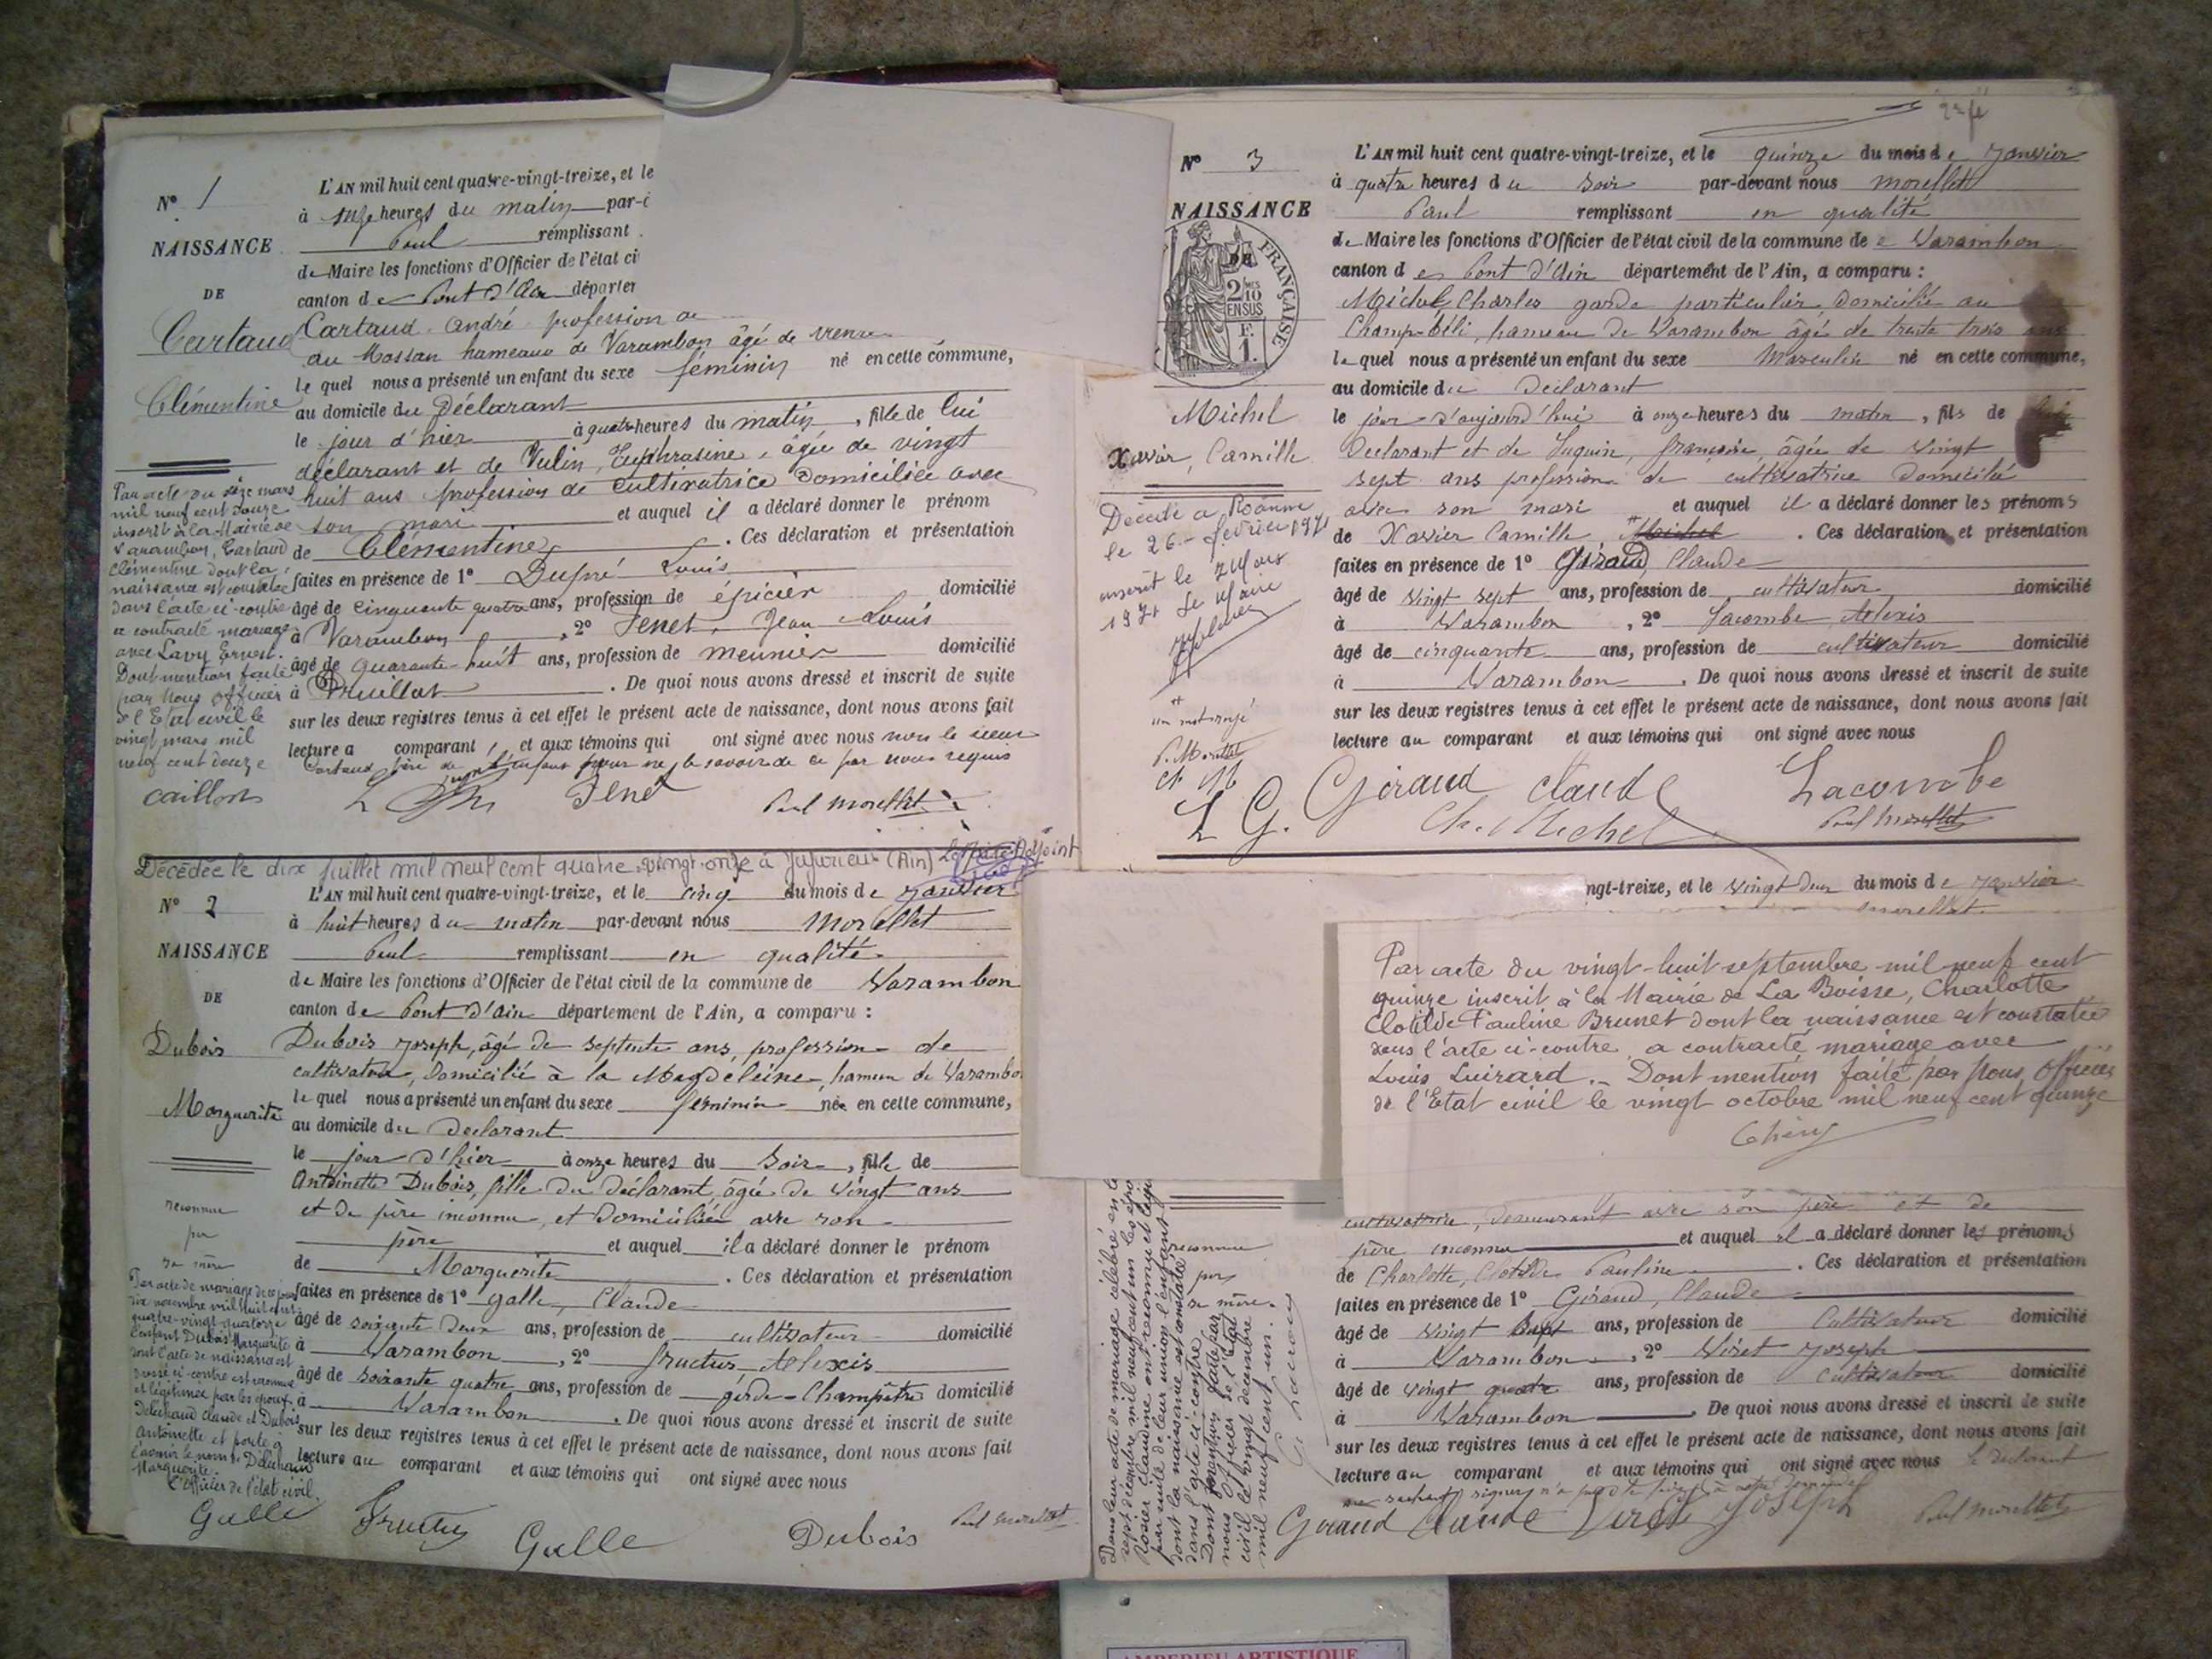 N° 1
NAISSANCE
DE
Cartaud
Clémentine
L'AN mil huit cent quatre-vingt-treize, et le
à onze heures du matin par-d
Paul remplissant
de Maire les fonctions d'Officier de l'état ci
canton de Pont d'Ain départer
Cartaud André profession de
au Mossan hameau de Varambon âgé de trente
le quel nous a présenté un enfant du sexe féminin né en cette commune,
au domicile du Déclarant
le jour d'hier à quatre heures du matin, fille de lui
déclarant et de Vulin, Euphrasine, âgée de vingt
huit ans profession de cultivatrice domiciliée avec
son mari et auquel il a déclaré donner le prénom
de Clémentine. Ces déclaration et présentation
faites en présence de 1° Dupré Louis
âgé de cinquante quatre ans, profession de épicier domicilié
à Varambon, 2° Fenet, Jean Louis
âgé de quarante-huit ans, profession de meunier domicilié
à Druillat. De quoi nous avons dressé et inscrit de suite
sur les deux registres tenus à cet effet le présent acte de naissance, dont nous avons fait
lecture a comparant, et aux témoins qui ont signé avec nous non le sieur
Cartaud père de l'enfant pour ne le savoir de ce par nous requis
Fenet Paul Morellet
Par acte du seize mars
mil neuf cent douze
inscrit à la Mairie de
Varambon, Cartaud
Clémentine dont la
naissance est constatée
dans l'acte ci-contre
a contracté mariage
avec Lavy Ernest.
Dont mention faite
par Nous Officier
de l'Etat civil le
vingt mars mil
neuf cent douze
Caillon
Décédée le dix juillet mil neuf cent quatre-vingt-onze à Jujurieux (Ain) Le Maire Adjoint
N° 2
NAISSANCE
DE
Dubois
Marguerite
L'AN mil huit cent quatre-vingt-treize, et le cinq du mois de janvier
à huit heures du matin par-devant nous Morellet
Paul remplissant en qualité
de Maire les fonctions d'Officier de l'état civil de la commune de Varambon
canton de Pont d'Ain département de l'Ain, a comparu :
Dubois Joseph, âgé de septente ans, profession de
cultivateur, domicilié à la Magdeleine, hameau de Varambon
le quel nous a présenté un enfant du sexe féminin née en cette commune,
au domicile du Déclarant
le jour d'hier à onze heures du soir, fille de
Antoinette Dubois, fille du déclarant, âgée de vingt ans
et de père inconnu, et domiciliée avec son
père et auquel il a déclaré donner le prénom
de Marguerite. Ces déclaration et présentation
faites en présence de 1° Galle, Claude
âgé de soixante deux ans, profession de cultivateur domicilié
à Varambon, 2° Fructus Alexis
âgé de soixante quatre ans, profession de garde-Champêtre domicilié
à Varambon. De quoi nous avons dressé et inscrit de suite
sur les deux registres tenus à cet effet le présent acte de naissance, dont nous avons fait
lecture au comparant et aux témoins qui ont signé avec nous
reconnue
par
sa mère
Par acte de mariage de ce jour
dix novembre mil huit cent
quatre-vingt-quatorze
l'enfant Dubois Marguerite
dont l'acte de naissance est
dressé ci-contre est reconnue
et légitimée par les époux
Délichaud Claude et Dubois
Antoinette et porte à
l'avenir le nom de Délichaud
Marguerite.
L'Officier de l'état civil.
Galle Fructus Galle Dubois Paul Morellet
N° 3
NAISSANCE
DE
FRANÇAISE
2/10
EN SUS
F.
1.
Michel
Xavier, Camille
L'AN mil huit cent quatre-vingt-treize, et le quinze du mois de janvier
à quatre heures du soir par-devant nous Morellet
Paul remplissant en qualité
de Maire les fonctions d'Officier de l'état civil de la commune de Varambon
canton de Pont d'Ain département de l'Ain, a comparu :
Michel Charles garde particulier, domicilié au
Champ-béli, hameau de Varambon âgé de trente trois ans
le quel nous a présenté un enfant du sexe Masculin né en cette commune,
au domicile du Déclarant
le jour d'aujourd'hui à onze heures du matin, fils de
Déclarant et de Suquin, françoise, âgée de vingt
sept ans profession de cultivatrice domicilié
avec son mari et auquel il a déclaré donner les prénoms
de Xavier Camille Michel. Ces déclaration et présentation
faites en présence de 1° Géraud, Claude
âgé de vingt sept ans, profession de cultivateur domicilié
à Varambon, 2° Lacombe Alexis
âgé de cinquante ans, profession de cultivateur domicilié
à Varambon. De quoi nous avons dressé et inscrit de suite
sur les deux registres tenus à cet effet le présent acte de naissance, dont nous avons fait
lecture au comparant et aux témoins qui ont signé avec nous
Décédé à Roanne
le 26 février 1971
inscrit le 2 Mars
1971 Le Maire
un mot rayé
P. Morellet
L G. Géraud Claude Lacombe
Ch. Michel Paul Morellet
ngt-treize, et le vingt deux du mois de janvier
Morellet.
Par acte du vingt-huit septembre mil neuf cent
quinze inscrit à la Mairie de La Boisse, Charlotte
Clotilde Pauline Brunet dont la naissance est constatée
dans l'acte ci-contre a contracté mariage avec
Louis Luirard. Dont mention faite par Nous Officier
de l'Etat civil le vingt octobre mil neuf cent quinze
Chény
cultivatrice, demeurant avec son père et de
père inconnu et auquel il a déclaré donner les prénoms
de Charlotte, Clotilde Pauline. Ces déclaration et présentation
faites en présence de 1° Géraud, Claude
âgé de vingt sept ans, profession de Cultivateur domicilié
à Varambon, 2° Viret Joseph
âgé de vingt quatre ans, profession de Cultivateur domicilié
à Varambon. De quoi nous avons dressé et inscrit de suite
sur les deux registres tenus à cet effet le présent acte de naissance, dont nous avons fait
lecture au comparant et aux témoins qui ont signé avec nous le déclarant
Géraud Claude Viret Joseph Paul Morellet
reconnue
par
sa mère.
Dans leur acte de mariage célébré en la
sept décembre mil neuf cent un les épo
Rosier Claudine ont reconnu et légi
par suite de leur union l'enfant
dont la naissance est constatée
dans l'acte ci-contre
Dont mention faite par
nous Officier de l'Etat
civil le vingt décembre
mil neuf cent un.
AMBERIEU ARTISTIQUE